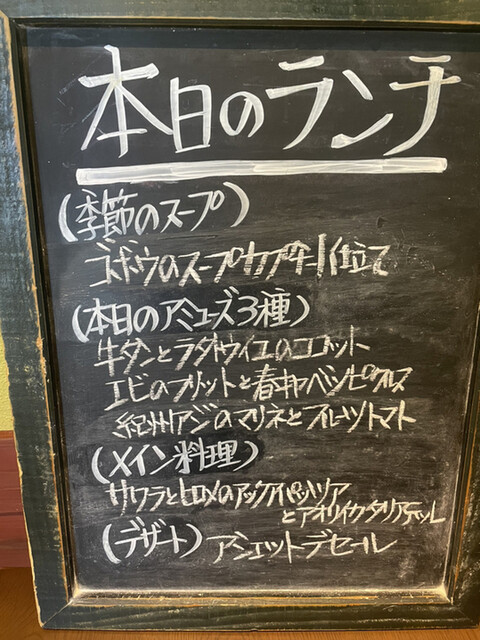 本日のランチ
(季節のスープ)
ゴボウのスープカプチーノ仕立て
(本日のアミューズ3種)
牛タンとラタトウイユのココット
エビのフリットと春キャベツピクルス
紀州アジのマリネとフルーツトマト
(メイン料理)
サワラとヒロメのアックアパッツア
とアオリイカタリアテッレ
(デザート)アシェットデセール